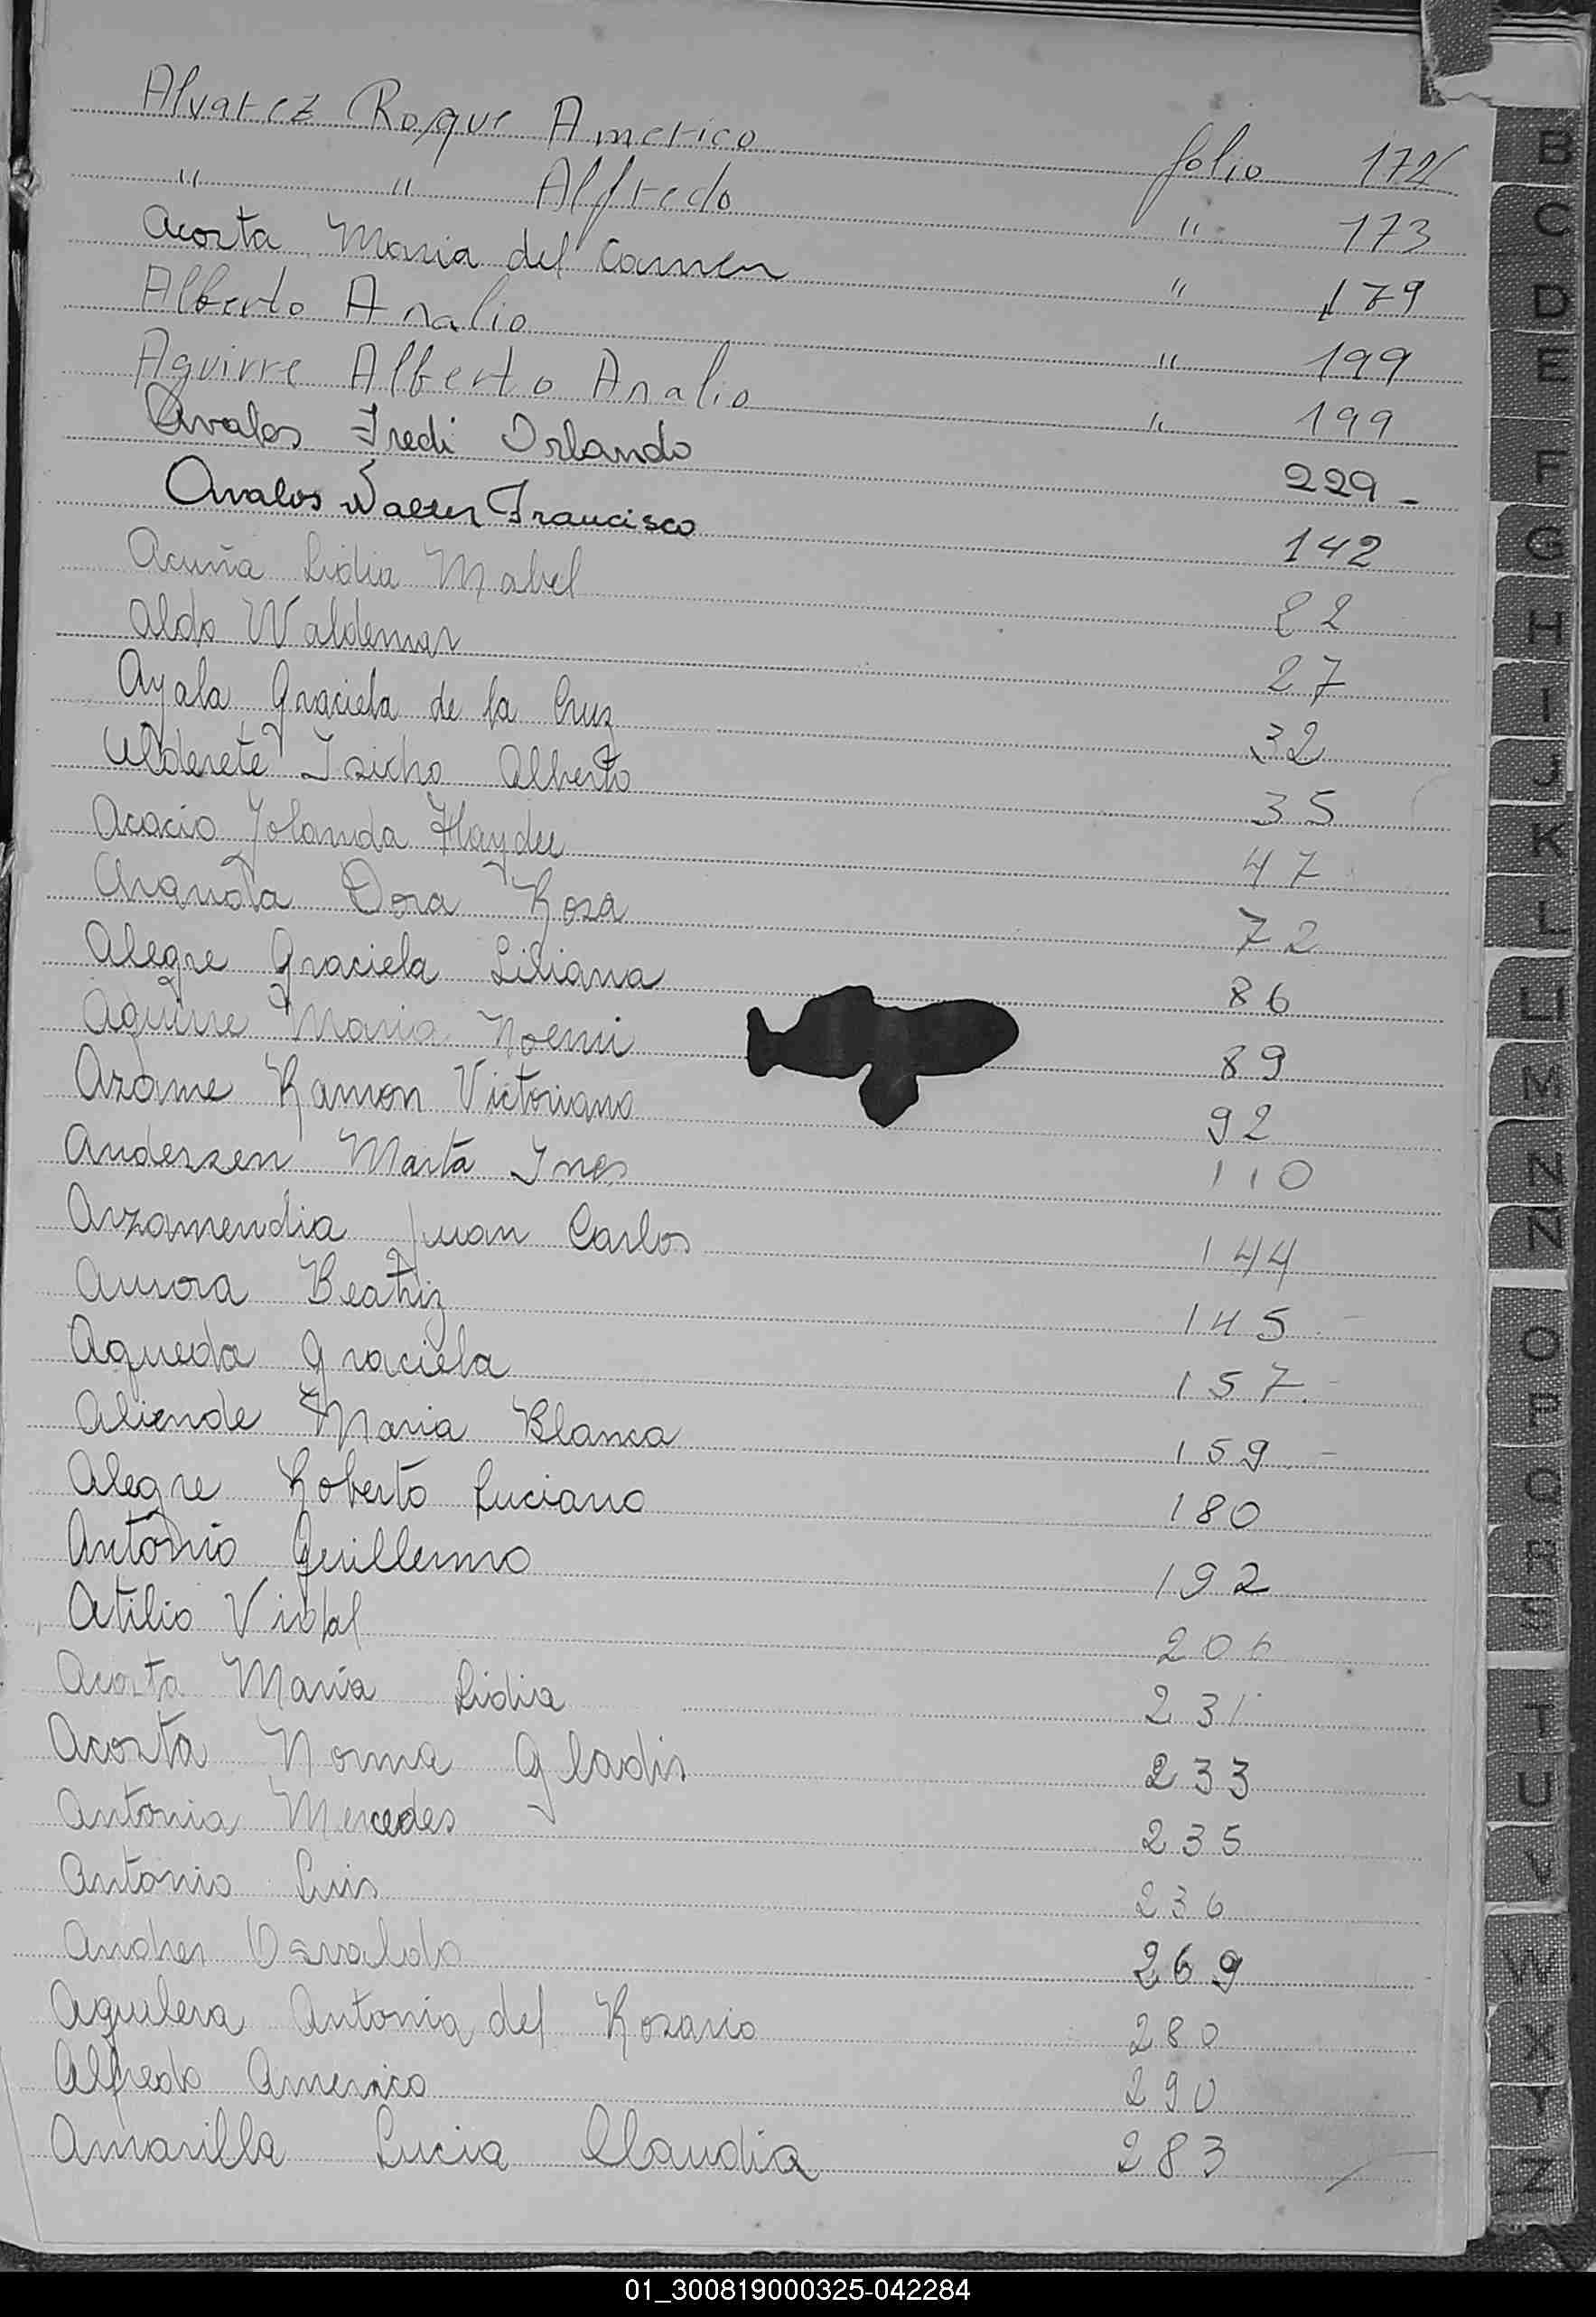 Alvarez Roque Americo folio 172
" " Alfredo " 173
Acosta Maria del Carmen " 179
Alberto Analio " 199
Aguirre Alberto Analio " 199
Avalos Fredi Orlando 229 -
Avalos Walter Francisco 142
Acuña Lidia Mabel 22
Aldo Waldemar 27
Ayala Graciela de la Cruz 32
Alderete Isicho Alberto 35
Acacio Yolanda Haydee 47
Dora Rosa 72
Alegre Graciela Liliana 86
Aguirre Maria Noemi 89
Azame Ramon Victoriano 92
Andersen Marta Ines 110
Arzamendia Juan Carlos 144
Aurora Beatriz 145
Agueda Graciela 157.-
Aliende Maria Blanca 159.-
Alegre Roberto Luciano 180
Antonio Guillermo 192
Atilio Vidal 206
Acosta María Lidia 231
Acosta Norma Gladis 233
Antonia Mercedes 235
Antonio Luis 236
Andres Osvaldo 269
Aguilera Antonia del Rosario 280
Alfredo Americo 290
Amarilla Lucia Claudia 283
B
C
D
E
F
G
H
I
J
K
L
LL
M
N
Ñ
O
P
Q
R
S
T
U
V
W
X
Y
Z
01_300819000325-042284